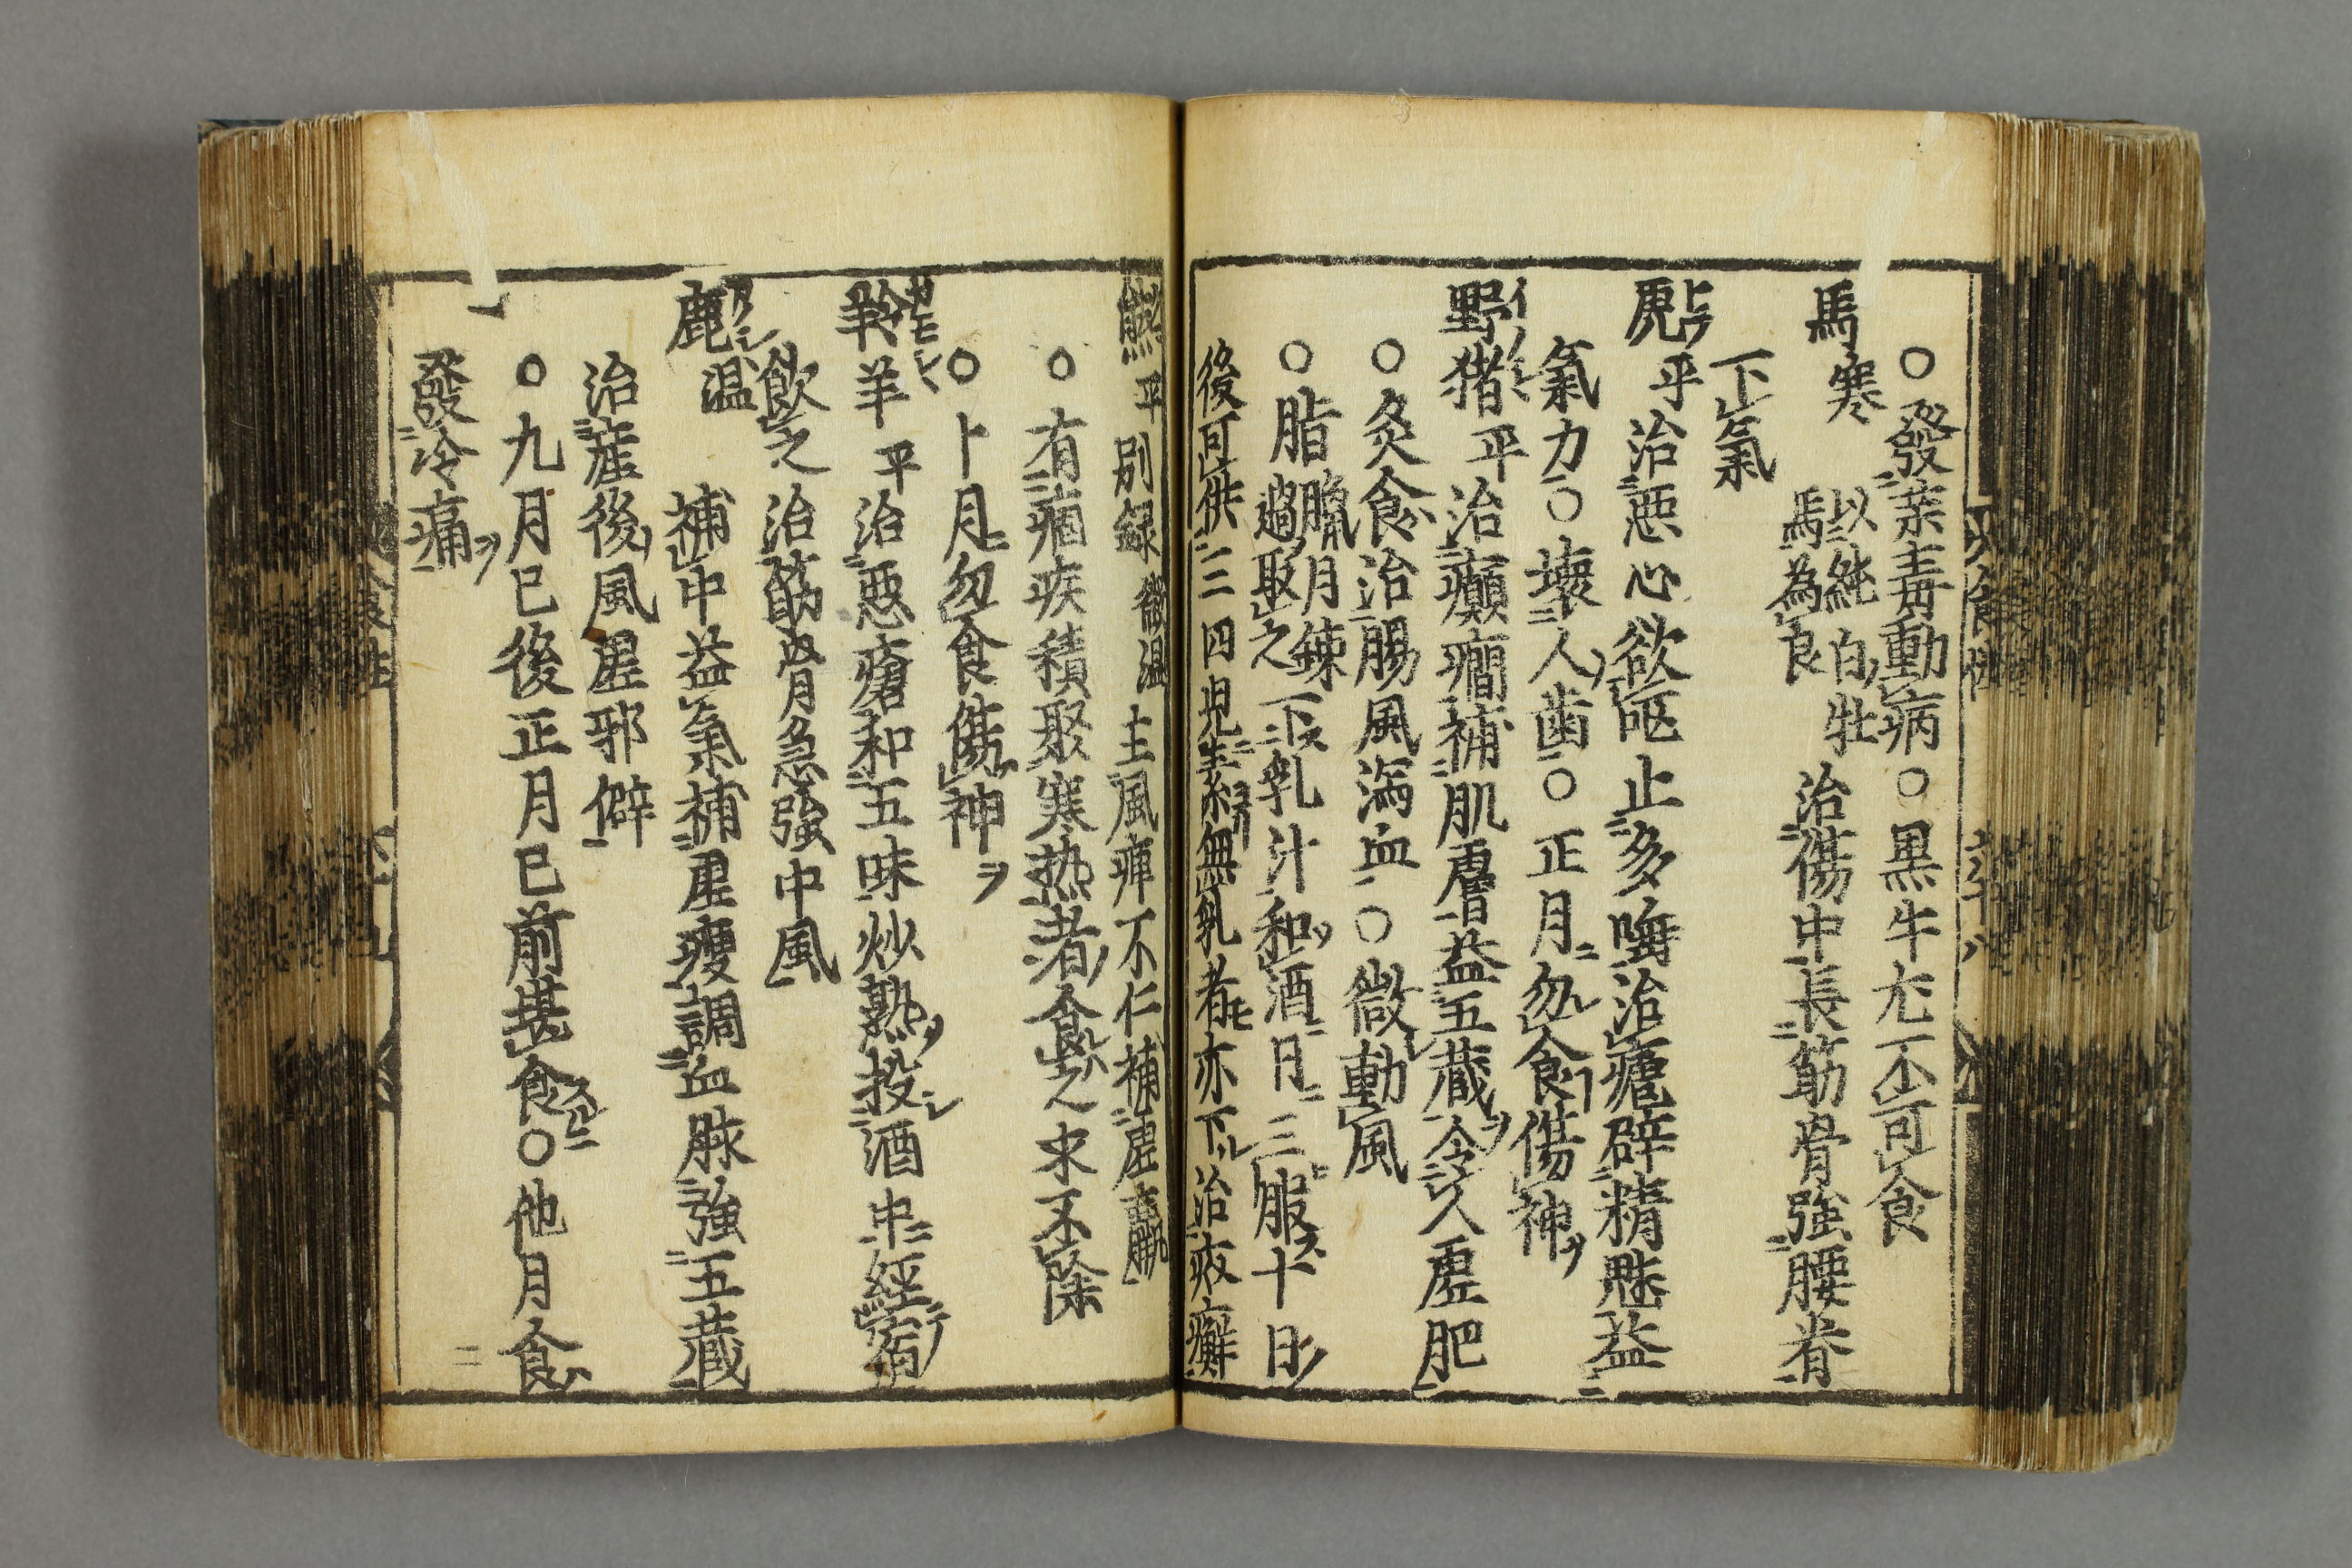 ○發葉毒動病○黒牛尤不可食
馬寒 以純白牡馬為良 治傷中長筋骨強腰脊
下氣
虎平 治悪心欲嘔止多唾治瘧辟精魅益
氣力○壊人歯○正月勿食傷神ヲ
野猪平 治癲癇補肌膚益五藏令人虚肥
○灸食治腸風瀉血○微動風
○脂臘月錬過取之下乳汁和酒日三服十日
後可供三四児素無乳者亦下治疥癬
熊平 別録微温 主風痺不仁補虚羸
○有痼疾積聚寒熱者食之永不除
○十月勿食傷神ヲ
羚羊平 治悪瘡和五味炒熟投酒中經宿
飲之治筋骨急強中風
鹿温 補中益氣補虚痩調血脉強五藏
治産後風虚邪僻
○九月已後正月已前堪食○他月食
發冷痛ヲ